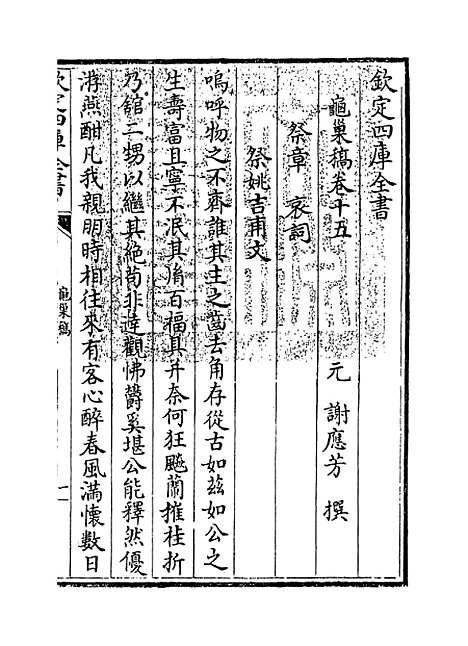 欽定四庫全書
龜巢稿卷十五
元 謝應芳 撰
祭章 哀詞
祭姚吉甫文
嗚呼物之不齊誰其主之齒去角存從古如兹如公之
生壽富且寧不泯其脩百福具并奈何狂飈蘭摧桂折
乃舘二甥以繼其絶苟非達觀怫欝奚堪公能釋然優
游燕酣凡我親朋時相往來有客心醉春風滿懷數日
欽定四庫全書
龜巢稿
一